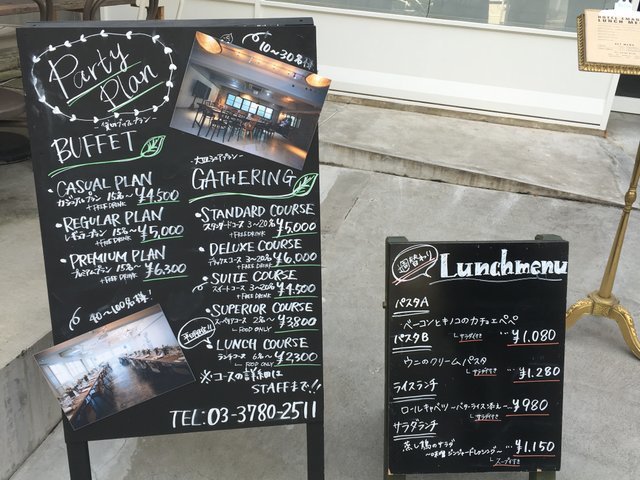 Party
Plan
10〜30名様
BUFFET
CASUAL PLAN
カジュアルプラン 15名〜 ¥4,500
+FREE DRINK
REGULAR PLAN
レギュラープラン 15名〜 ¥5,000
+FREE DRINK
PREMIUM PLAN
プレミアムプラン 15名〜 ¥6,300
+FREE DRINK
40〜100名様!
大皿シェアプラン
GATHERING
STANDARD COURSE
スタンダードコース 3〜20名 ¥5,000
+FREE DRINK
DELUXE COURSE
デラックスコース 3〜20名 ¥6,000
+FREE DRINK
SUITE COURSE
スイートコース 3〜20名 ¥4,500
+FREE DRINK
SUPERIOR COURSE
スーペリアコース 2名〜 ¥3800
└ FOOD ONLY
平日限定
LUNCH COURSE
ランチコース 6名〜 ¥2300
└ FOOD ONLY
※コースの詳細は
STAFFまで!!
TEL:03-3780-2511
週替わり
Lunchmenu
パスタA
ベーコンとキノコのカチョエペペ
¥1,080
└サラダ付き
パスタB
ウニのクリームパスタ
¥1,280
└サラダ付き
ライスランチ
ロールキャベツ 〜バターライス添え〜 ¥980
└サラダ付き
サラダランチ
蒸し鶏のサラダ
〜味噌ジンジャードレッシング〜 ¥1,150
└スープ付き
LUNCH MENU